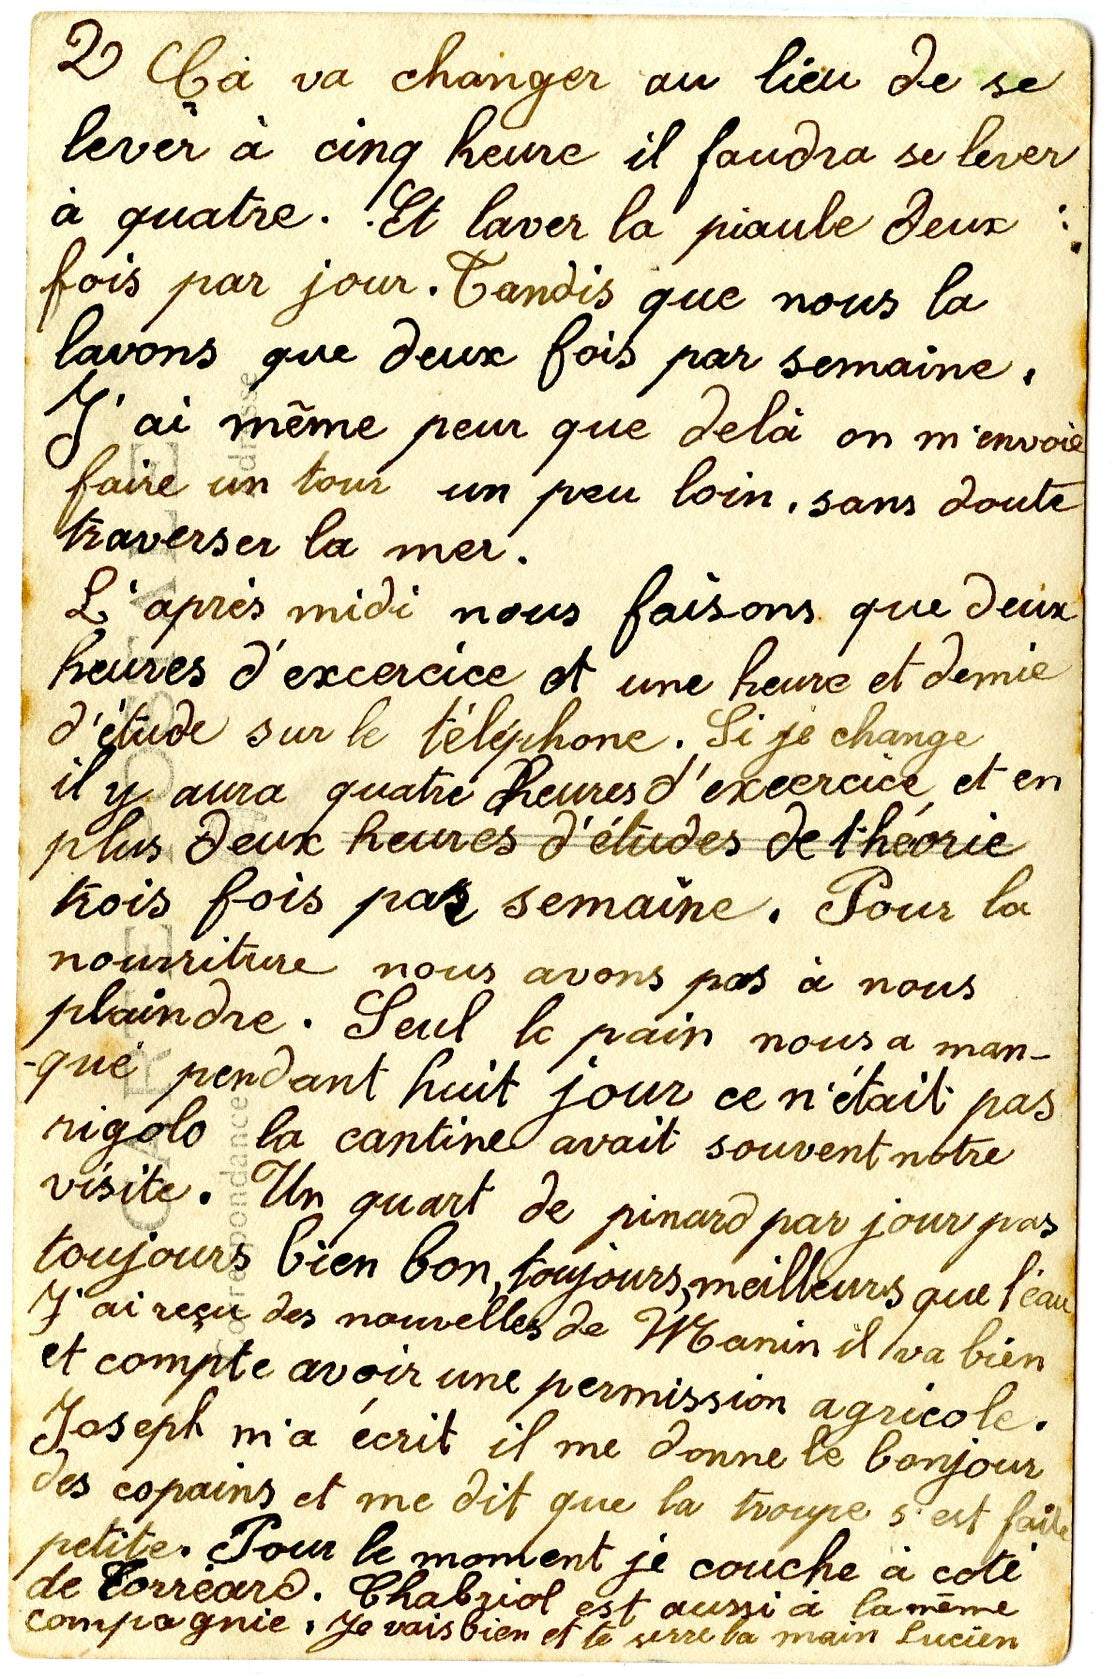 2 Ça va changer au lieu de se
lever à cinq heure il faudra se lever
à quatre. Et laver la piaule deux
fois par jour. Tandis que nous la
lavons que deux fois par semaine.
J'ai même peur que delà on m'envoie
faire un tour un peu loin, sans doute
traverser la mer.
L'après midi nous faisons que deux
heures d'excercice et une heure et demie
d'étude sur le téléphone. Si je change
il y aura quatre heures d'excercice, et en
plus deux heures d'études de théorie
trois fois par semaine. Pour la
nourriture nous avons pas à nous
plaindre. Seul le pain nous a man-
-qué pendant huit jour ce n'était pas
rigolo la cantine avait souvent notre
visite. Un quart de pinard par jour pas
toujours bien bon, toujours meilleurs que l'eau
J'ai reçu des nouvelles de Manin il va bien
et compte avoir une permission agricole.
Joseph m'a écrit il me donne le bonjour
des copains et me dit que la troupe s'est faite
petite. Pour le moment je couche à coté
de Torréard. Chabriol est aussi à la même
compagnie. Je vais bien et te serre la main Lucien
CARTE POSTALE
Correspondance